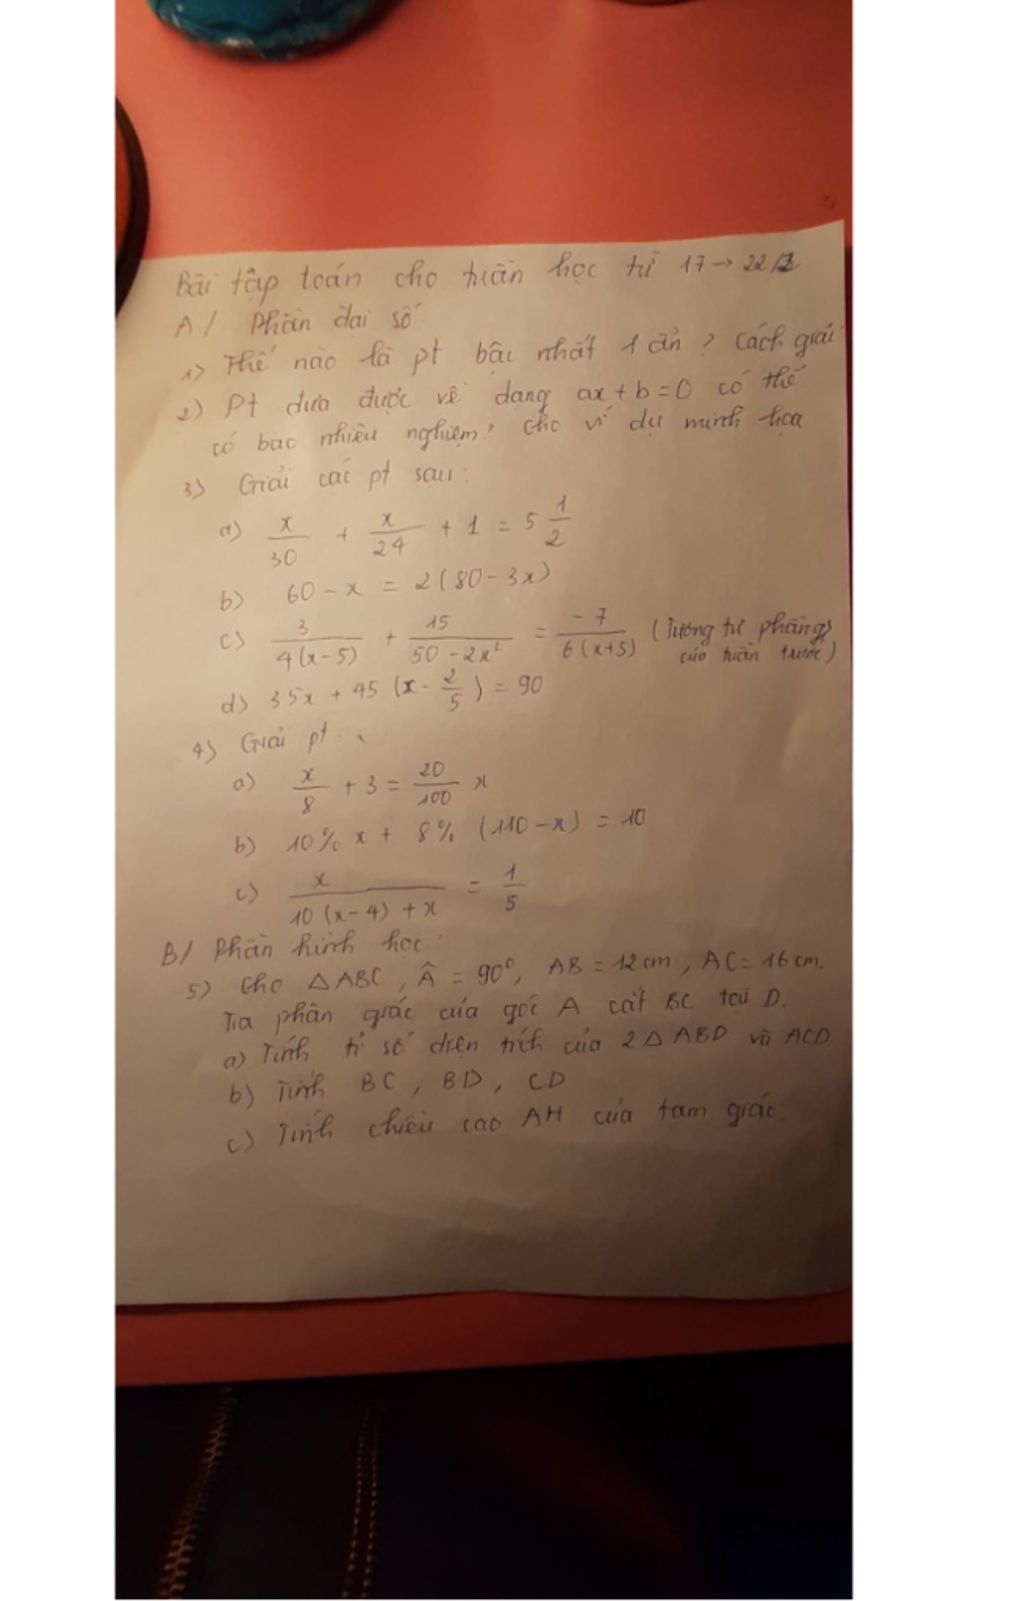 Bài tập toán cho tuần học từ 17 → 22/3
A/ Phần đại số
1) Thế nào là pt bậc nhất 1 ẩn? Cách giải
2) Pt đưa được về dạng ax + b = 0 có thể
có bao nhiêu nghiệm? cho ví dụ minh họa
3) Giải các pt sau:
a) x/30 + x/24 + 1 = 5 1/2
b) 60 - x = 2(80 - 3x)
c) 3/4(x-5) + 15/50 - 2x² = -7/6(x+5) (Tương tự phần g)
của tuần trước)
d) 35x + 45 (x - 2/5) = 90
4) Giải pt:
a) x/8 + 3 = 20/100 x
b) 10% x + 8% (110 - x) = 10
c) x/10(x-4) + x = 1/5
B/ Phần hình học:
5) Cho △ABC, Â = 90°, AB = 12cm, AC = 16cm.
Tia phân giác của góc A cắt BC tại D.
a) Tính tỉ số diện tích của 2△ ABD và ACD
b) Tính BC, BD, CD
c) Tính chiều cao AH của tam giác.